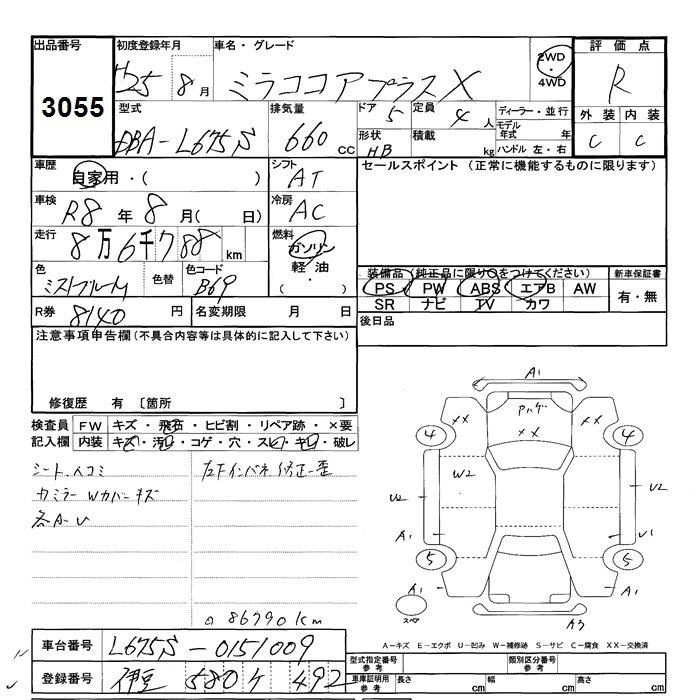 出品番号 初度登録年月 車名・グレード 評価点
3055 H25 8月 ミラココアプラスX 2WD・4WD R
型式 排気量 ドア 5 定員 4人 ディーラー・並行 外装 内装
DBA-L675S 660 CC 形状 HB 積載 kg モデル年式 年 ハンドル 左・右 C C
車歴 自家用・( ) シフト AT セールスポイント (正常に機能するものに限ります)
車検 R8年8月( 日) 冷房 AC
走行 8万6千788km 燃料 ガソリン
軽油
・( )
色 ミストブルーM 色替 色コード B69 装備品(純正品に限り○をつけてください) 新車保証書
PS PW ABS エアB AW 有・無
SR ナビ TV カワ
R券 8140円 名変期限 月 日 後日品
注意事項申告欄(不具合内容等は具体的に記入して下さい)
修復歴 有 〔箇所 〕
検査員 FW キズ・飛石・ヒビ割・リペア跡・×要
記入欄 内装 キズ・汚レ・コゲ・穴・スレ・キレ・破レ
シート、凹コミ 左Fインパネ修正歪
カミラーWカバーキズ
各A-U
86790km
A1
XX XX XX
4 4
W2
U2 U2
A1 U1
5 5
A1 A1
スペア A3
A-キズ E-エクボ U-凹み W-補修跡 S-サビ C-腐食 XX-交換済
車台番号 L675S-0151009 型式指定番号 参考 類別区分番号 参考
登録番号 伊豆 580 ケ 492 車庫証明用 参考 長さ cm 幅 cm 高さ cm